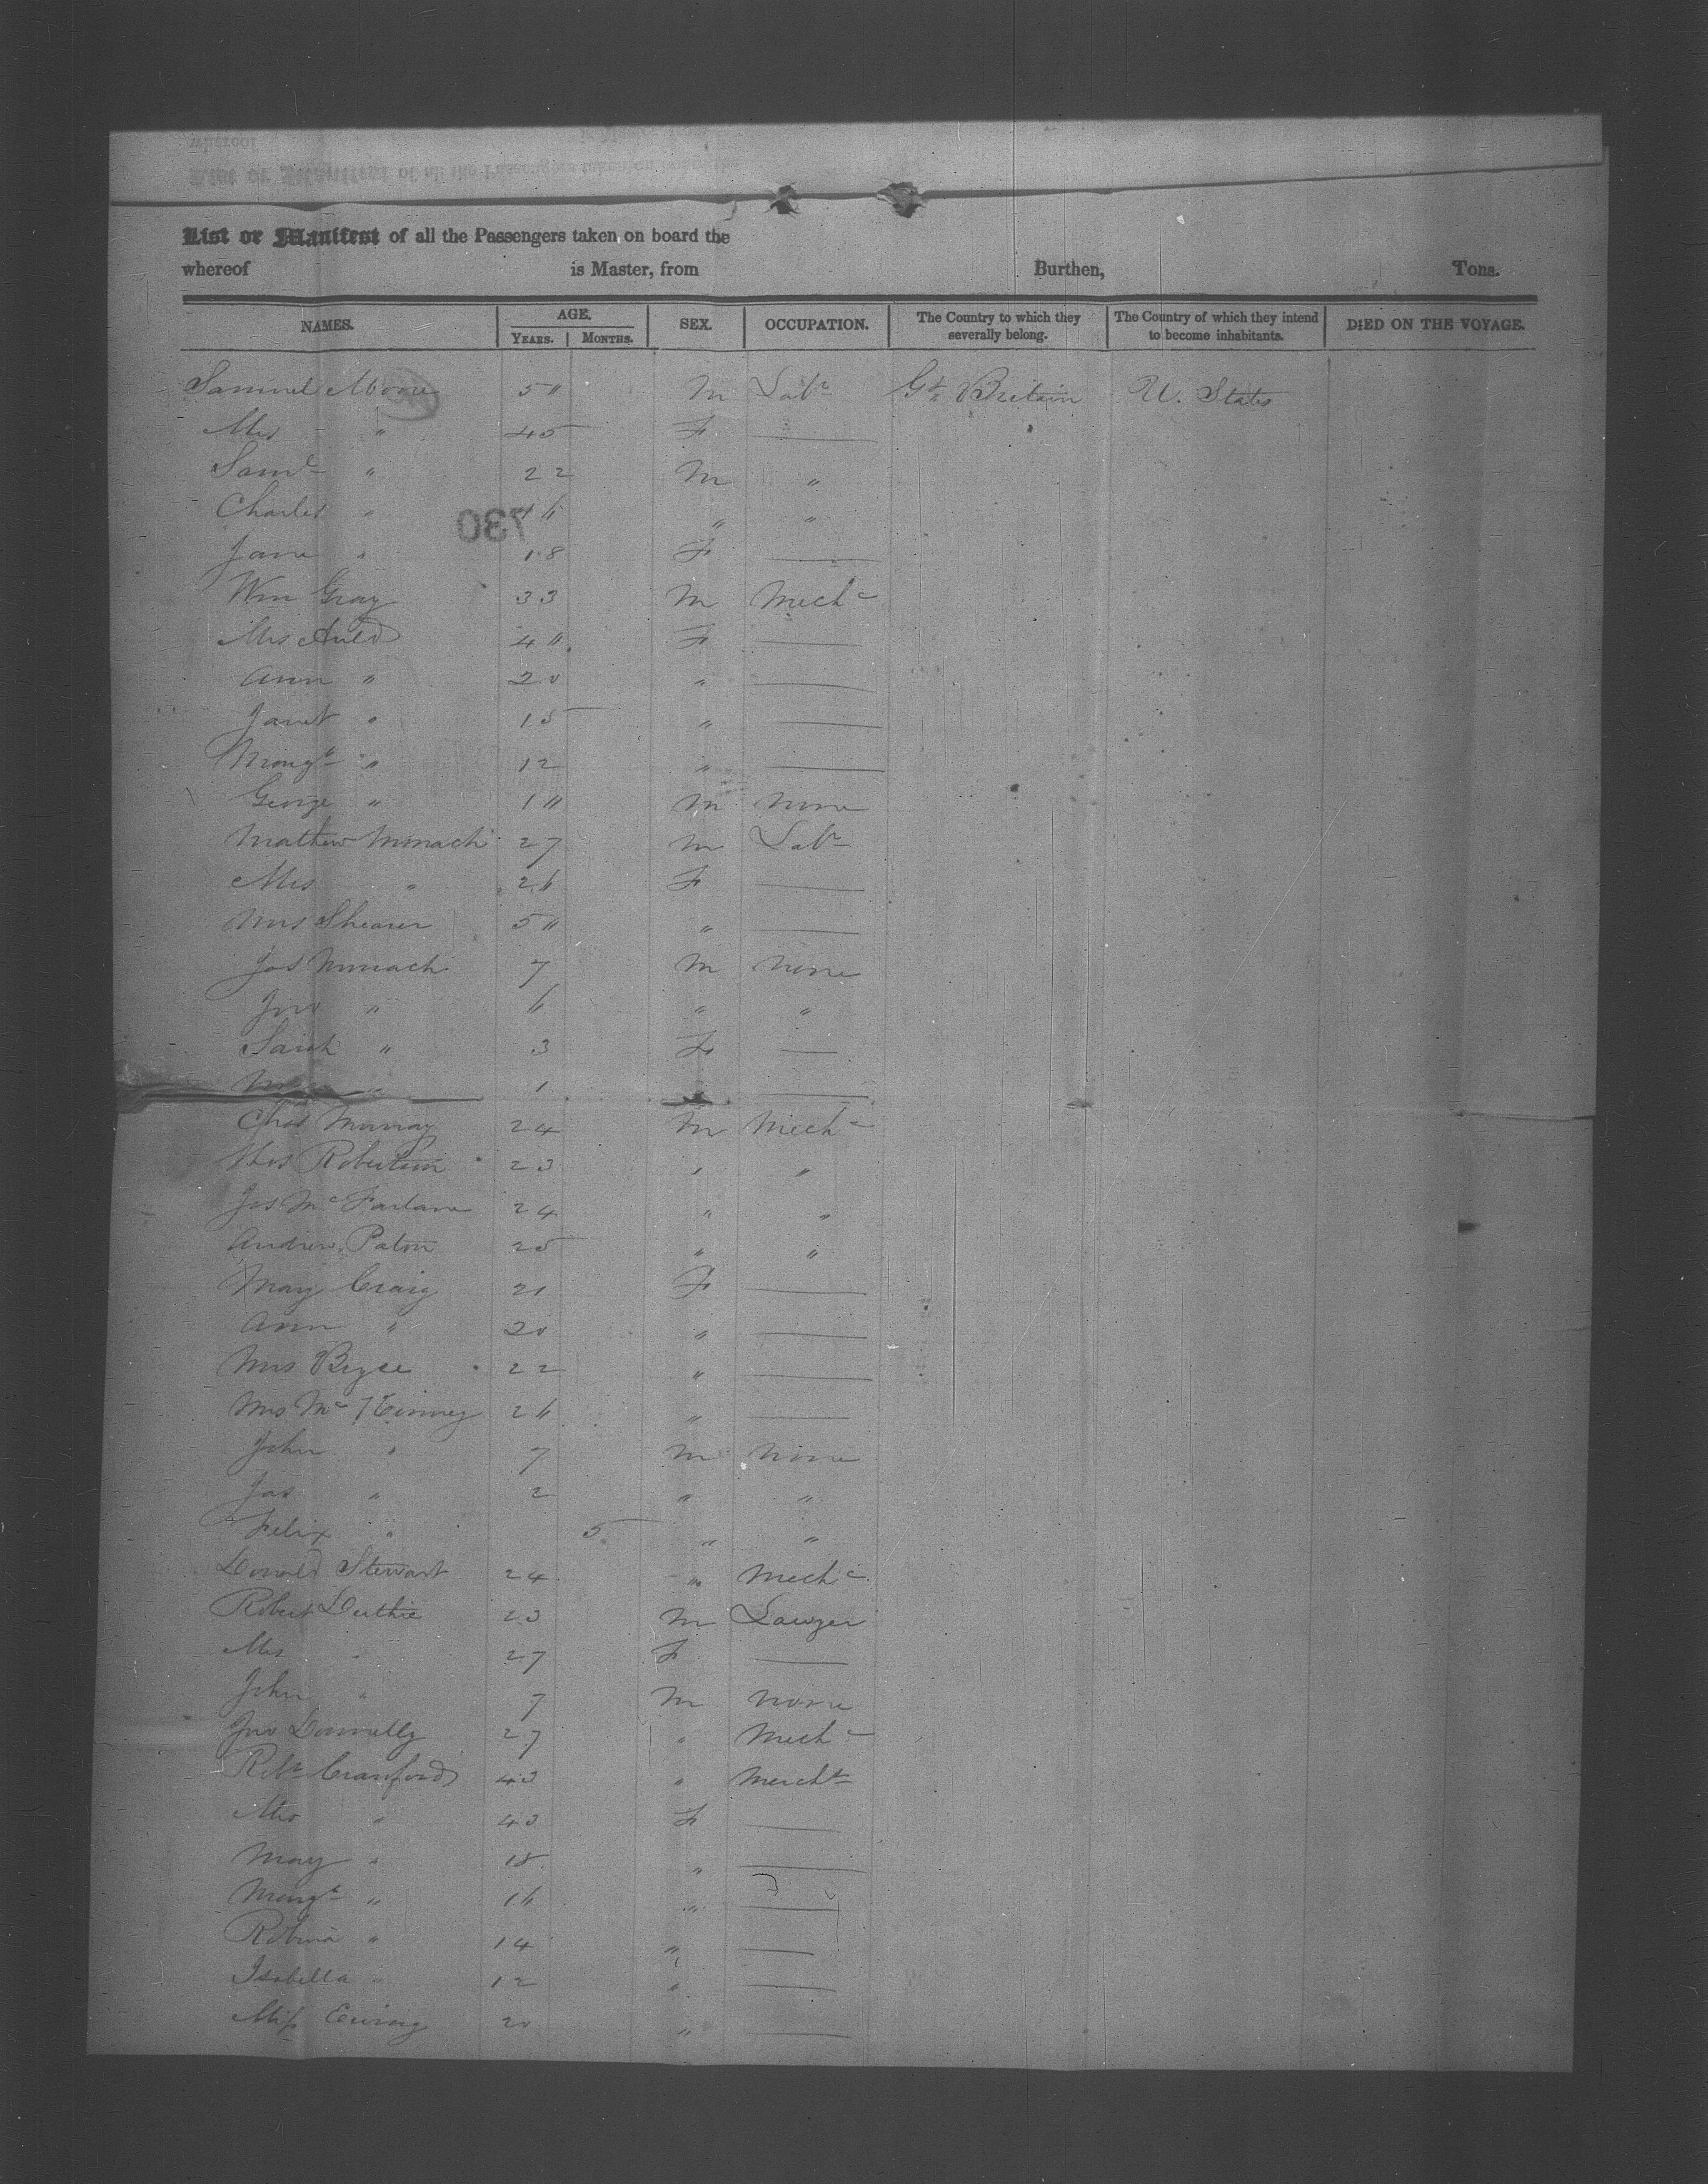 List or Manifest of all the Passengers taken on board the
whereof is Master, from Burthen, Tons.
NAMES. AGE. YEARS. MONTHS. SEX. OCCUPATION. The Country to which they severally belong. The Country of which they intend to become inhabitants. DIED ON THE VOYAGE.
Samuel Moore 5" M Labr Gt Britain U. States
Mrs " 45 F —
Saml " 22 M "
Charles " 16 " "
Jane " 18 F —
Wm Gray 33 M Mechc
Mrs Auld 4" F —
Ann " 20 " —
Janet " 15 " —
Margt " 12 " —
George " 1" M None
Mathew Monach 27 M Labr
Mrs " 26 F —
Mrs Shearer 5" " —
Jas Monach 7 M None
Jno " 6 " "
Sarah " 3 F —
" 1 —
Chas Murray 24 M Mechc
Thos Robertson 23 " "
Jas McFarlane 24 " "
Andrew Paton 25 " "
Mary Craig 21 F —
Ann " 20 " —
Mrs Bryce 22 " —
Mrs McKinney 26 " —
John " 7 M None
Jas " 2 " "
Felix " 5 " "
Donald Stewart 24 " Mechc
Robert Duthie 23 M Sawyer
Mrs " 27 F —
John " 7 M None
Jno Donnelly 27 " Mechc
Robt Crawford 43 " Mercht
Mrs " 43 F —
Mary " 18 " —
Margt " 16 " —
Robina " 14 " —
Isabella " 12 " —
Miss Ewing 20 " —
730